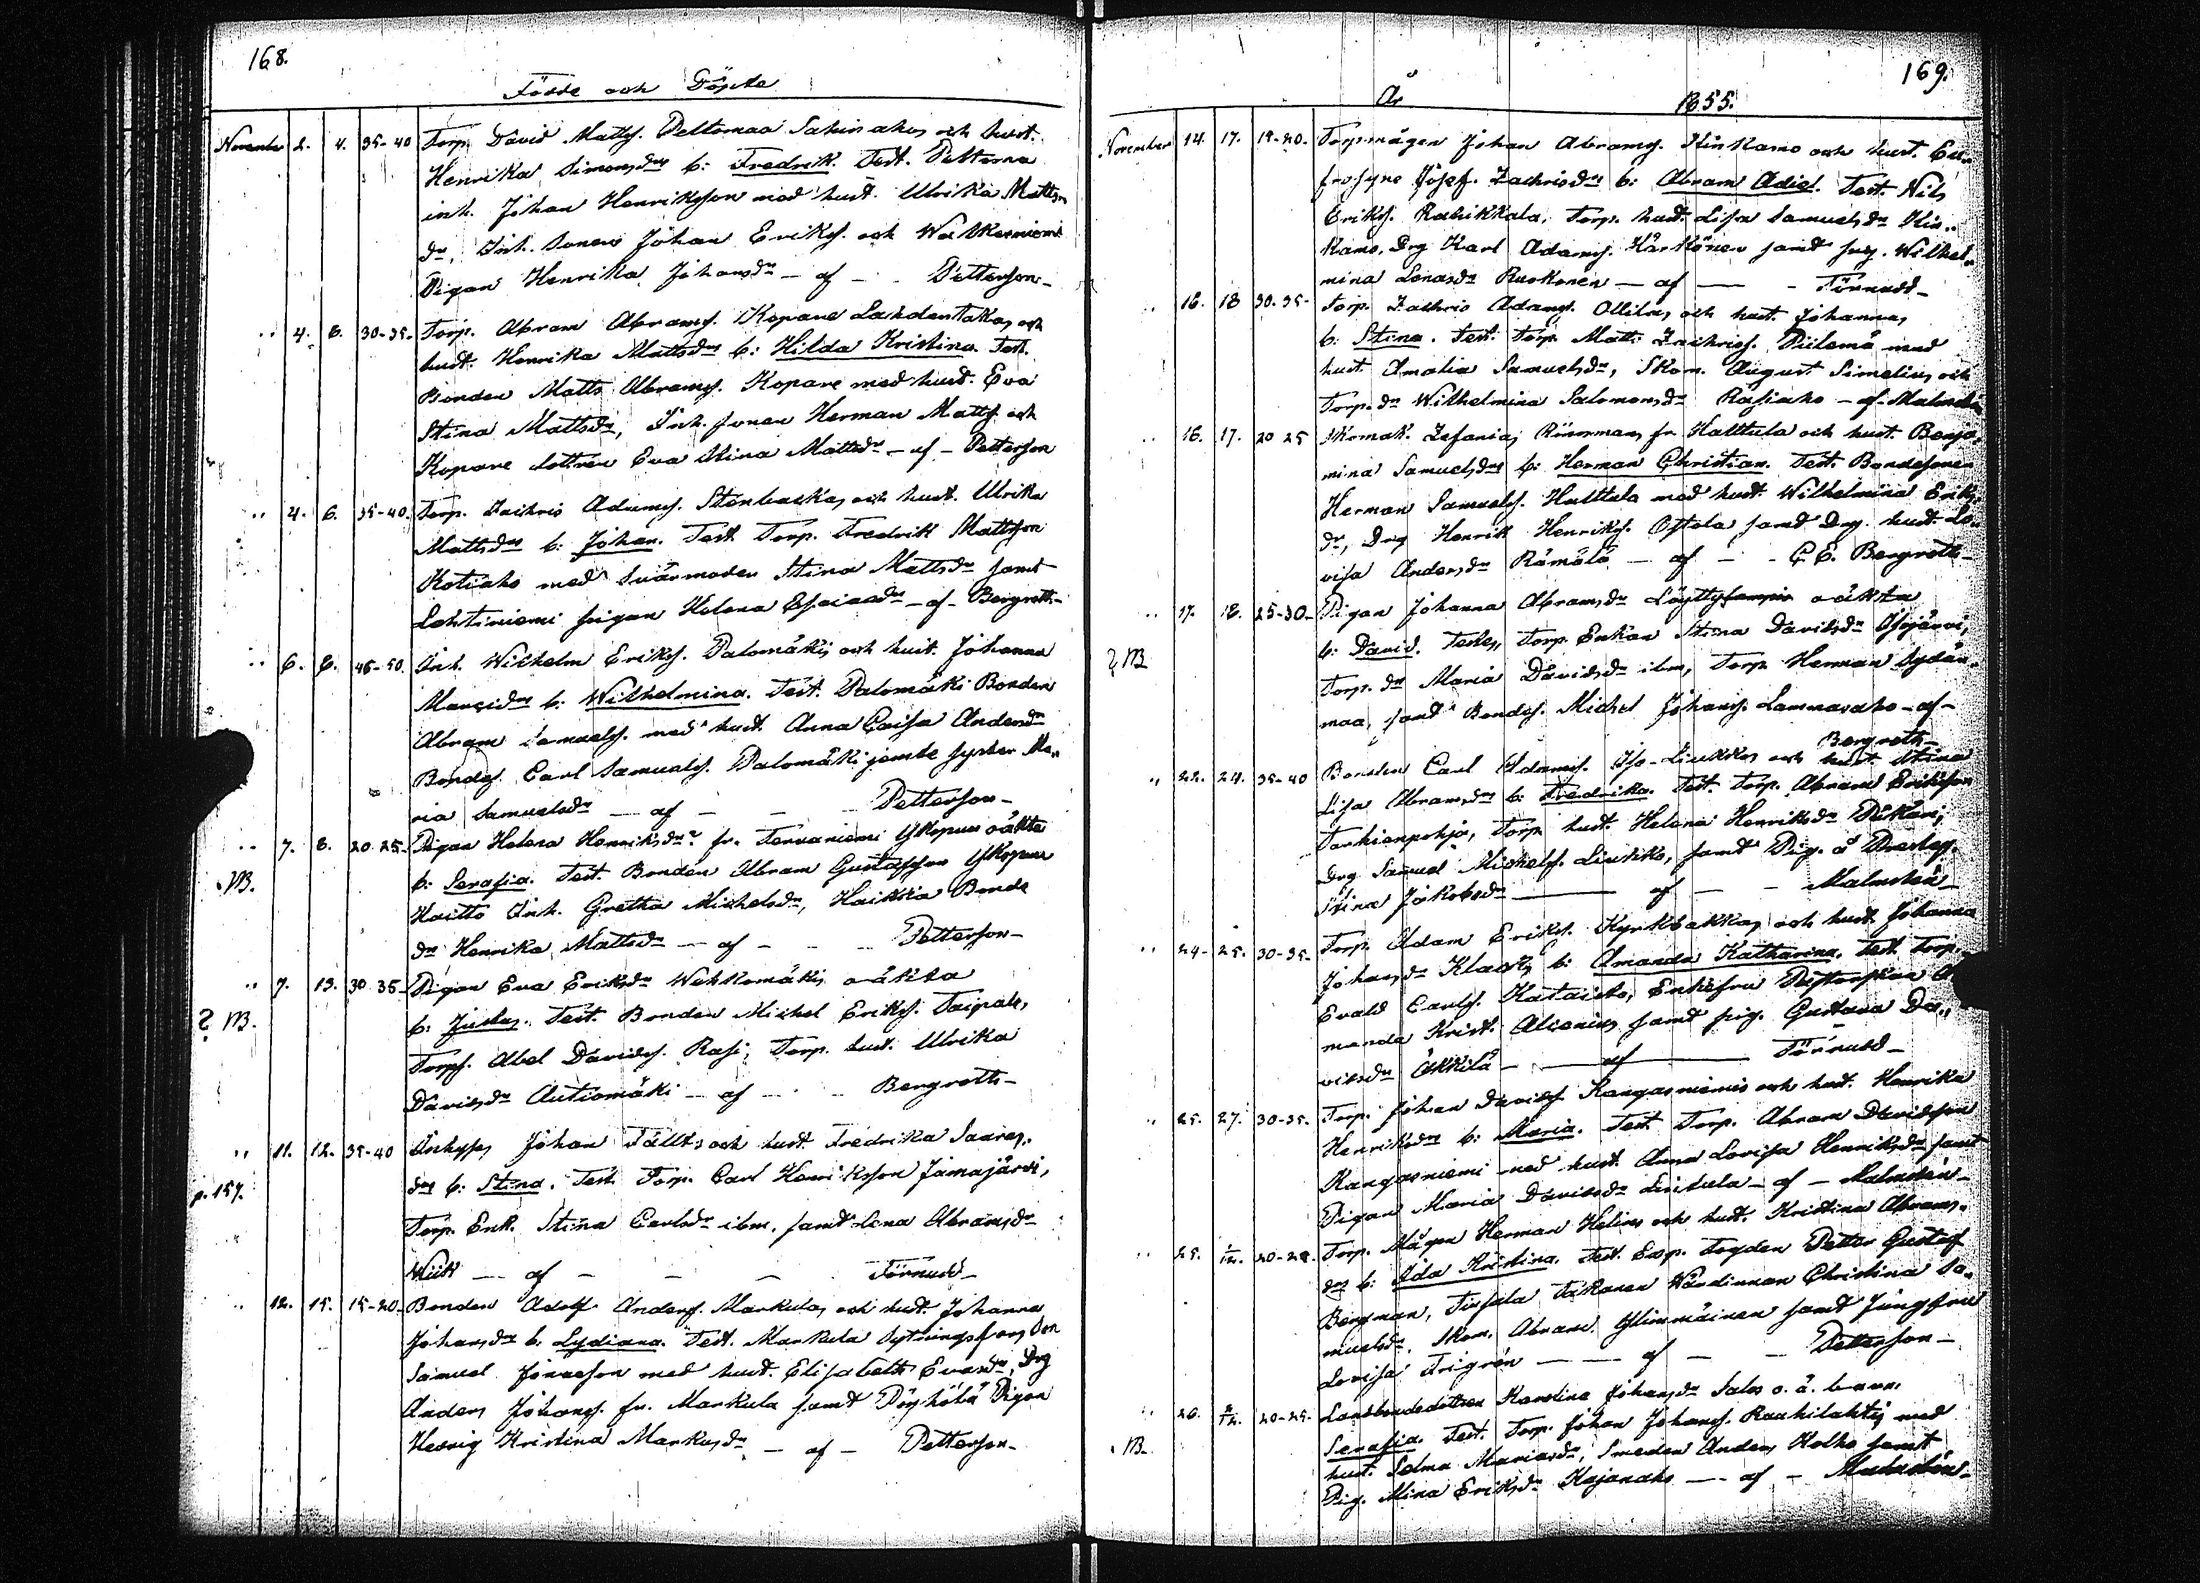 168.
Födde och Döpte
November 2. 4. 35-40 Torp. David Matts. Peltomaa Sakinaho, och hust.
Henrika Simonsdr b: Fredrik. Test. Peltomaa
inh. Johan Henriksson med hust. Ulrika Matts
dr, Inh. sonen Johan Eriks. och
Pigan Henrika Johansdr - af - Petterson -
" 4. 6. 30-35. Torp. Abram Abrams. Kopare Lahdentaka, och
hust. Henrika Mattsdr b: Hilda Kristina. Test.
Bonden Matts Abrams. Kopare med hust. Eva
Stina Mattsdr, Inh. sonen Herman Matts. och
Kopare dottren Eva Stina Mattsdr - af - Petterson
" 4. 6. 35-40. Torp. Zachris Adams. Stenbacka, och hust. Ulrika
Mattsdr b: Johan. Test. Torp. Fredrik Mattson
Kotiaho med Svärmoder Stina Mattsdr samt
Lehtiniemi pigan Helena Esaiasdr - af - Bergroth -
" 6. 6. 45-50. Inh. Wilhelm Eriks. Palomäki, och hust. Johanna
b: Wilhelmina. Test. Palomäki Bonden
Abram Samuels. med hust. Anna Caisa Andersdr
Bonds. Carl Samuels. Palomäki jemte syster Ma„
ria Samuelsdr - af - - Petterson -
" 7. 8. 20. 25. Pigan Helena Henriksdr fr. Tervaniemi oäkta
.NB. b: Serafia. Test. Bonden Abram Gustafsson
Inh. Gretha Michelsdr, Bonde
dr Henrika Mattsdr - af - - Petterson -
" 7. 13. 30. 35. Pigan Eva Eriksdr Wehkomäki, oäkta
? NB. b: Justus. Test. Bonden Michel Eriks. Taipale,
Torps. Abel Davids. Rasi, Torp. hust. Ulrika
Davidsdr Autiomäki - af - Bergroth -
" 11. 12. 35-40 Inhyses Johan Fällt, och hust. Fredrika
p. 157. dr b: Stina. Test. Torp. Carl Henriksson Jämäjärvi,
Torp. Enk. Stina Carlsdr ibm, samt Lena Abramsdr
Wiik - af - - - Törnudd -
" 12. 15. 15-20. Bonden Adolf Anders. Markula, och hust. Johanna
Johansdr b: Lydiana. Test. Markula Sytningsman
Samuel Jonasson med hust. Elisabeth Evasdr, Drg
Anders Johans. fr. Markula samt Pigan
Hedvig Kristina Markusdr - af - Petterson -
169.
År 1855.
November 14. 17. 19-20. Torpmågen Johan Abrams. Hinkamo och hust. Eu„
frosyne Josef. Zachrisdr b: Abram Adiel. Test. Nils
Eriks. Rahikkala, Torp. hust. Lisa Samuelsdr Hin„
kamo, Drg Karl Adams. Härkönen samt pig. Wilhel„
mina Ruokonen - af - - Törnudd -
" 16. 18 30. 35- Torp. Zachris Adams. Ollila, och hust. Johanna,
b: Stina. Test. Torp. Matts Zachris. Piilemä med
hust. Amalia Samuelsdr, Skom. August Simelius, och
Torp. dr Wilhelmina Salomonsdr Rasiaho - af - Malmsten
" 16. 17. 20 25 Skomak. Zefanias fr. Halttula och hust. Benja„
mina Samuelsdr b: Herman Christian. Test. Bondesonen
Herman Samuels. Halttula med hust. Wilhelmina Eriks„
dr, Drg Henrik Henriks. Ojtola samt Drg. hust. Lo„
visa Andersdr Rämälä - af - - C E. Bergroth -
" 17. 18. 25-30- Pigan Johanna Abramsdr oäkta
? NB. b: David. Testes, Torp. Enkan Stina Davidsdr Isojärvi,
Torp. dr Maria Davidsdr ibm, Torp. Herman Sydän„
maa, samt Bonds. Michel Johans. Lammasaho - af -
Bergroth -
" 22. 24. 35-40 Bonden Carl Adams. Iso-Liukko, och hust. Stina
Lisa Abramsdr b: Fredrika. Test. Torp. Abram Erikson
Torp. hust. Helena Henriksdr
Drg Samuel Michels. Liukko, samt Pig. å
Stina Jakobsdr - af - - Malmstén -
" 24- 25. 30-35- Torp. Adam Eriks. Kyrkbacka, och hust. Johanna
Johansdr b: Amanda Katharina. Test. Torp.
Evald Carls. Kataisto, A„
manda Krist. Alcenius samt pig. Gustava Da„
vidsdr Äkkilä - af - Törnudd -
" 25. 27. 30-35. Torp. Johan Davids. Kangasniemi och hust. Henrika
Henriksdr b: Maria. Test. Torp. Abram Davidson
Kangasniemi med hust. Anna Lovisa Henriksdr samt
Pigan Maria Davidsdr - af - Malmstén -
" 25. 1/12. 20-25. Torp. Mågen Herman Helin och hust. Kristina Abrams„
dr b: Ida Kristina. Test. Exp. Fogden Petter Gustaf
Bergman, Wärdinnan Christina Sa„
muelsdr, Skom. Abram samt Jungfru
Lovisa - af - - Petterson -
" 26. 2/12. 20-25. Landbondedottren Karolina Johansdr Salo o. ä. barn
. NB. Serafia. Test. Torp. Johan Johans. Rauhilahti, med
hust. Selma Mariasdr, Smeden Anders Kolho samt
Pig. Mina Eriksdr Kajanaho - af - Malmstén -